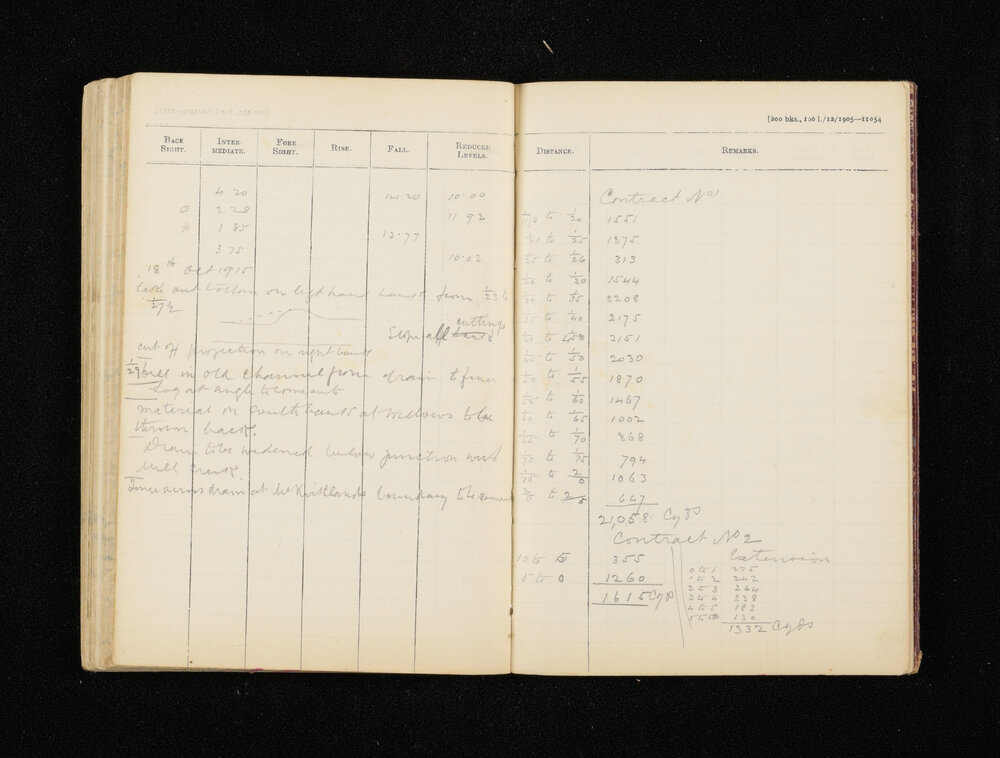 BACK SIGHT. INTER-MEDIATE. FORE SIGHT. RISE. FALL. REDUCED LEVELS.
4.20 14.20 10.00
0 2.28 11 92
H 1 85 13.77
3.75 10.02
18th Oct 1915
take out bottom on left hand bank from 1/23
1/27½
cuttings
Slope all banks
cut off projection on right bank
1/29 fill in old channel from drain to fence
Log at angle to come out
material on south bank at Willows to be
thrown back.
Drain to be widened below junction with
Mill Creek
Fence across drain at McKirklands boundary to be
[200 bks., 100 l./12/1905—11054
DISTANCE. REMARKS.
Contract No 1
to 1/20 1551
1/20 to 1/25 1375
1/25 to 1/26 313
1/26 to 1/30 1544
1/30 to 1/35 2208
1/35 to 1/40 2175
1/40 to 2151
1/45 to 1/50 2030
1/50 to 1/55 1870
1/55 to 1/60 1467
1/60 to 1/65 1002
1/65 to 1/70 868
1/70 to 1/75 794
1/75 to 2/0 1063
2/0 to 647
21,058 Cyds
Contract No 2
10 to 5 355
5 to 0 1260
1615 Cyds
Extension
0 to 1 275
1 to 2 242
2 to 3 264
3 to 4 238
4 to 5 183
5 to 130
1332 Cyds